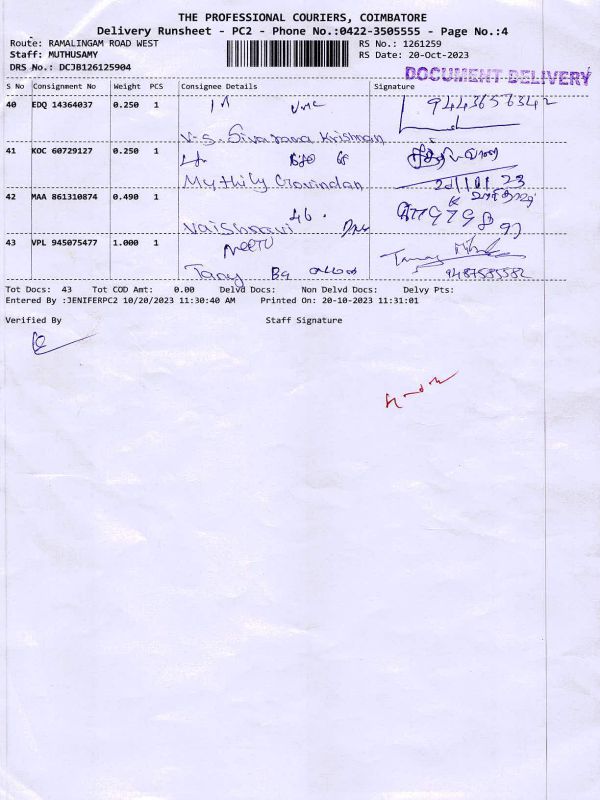 THE PROFESSIONAL COURIERS, COIMBATORE
Delivery Runsheet - PC2 - Phone No.:0422-3505555 - Page No.:4
Route: RAMALINGAM ROAD WEST RS No.: 1261259
Staff: MUTHUSAMY RS Date: 20-Oct-2023
DRS No.: DCJB126125904
DOCUMENT DELIVERY
S No Consignment No Weight PCS Consignee Details Signature
40 EDQ 14364037 0.250 1
V.S. Sivarama Krishnan
41 KOC 60729127 0.250 1
Mythily Govindan
42 MAA 861310874 0.490 1 46.
Vaishnavi
43 VPL 945075477 1.000 1 Neetu
Tanay 9487585582
Tot Docs: 43 Tot COD Amt: 0.00 Delvd Docs: Non Delvd Docs: Delvy Pts:
Entered By :JENIFERPC2 10/20/2023 11:30:40 AM Printed On: 20-10-2023 11:31:01
Verified By Staff Signature